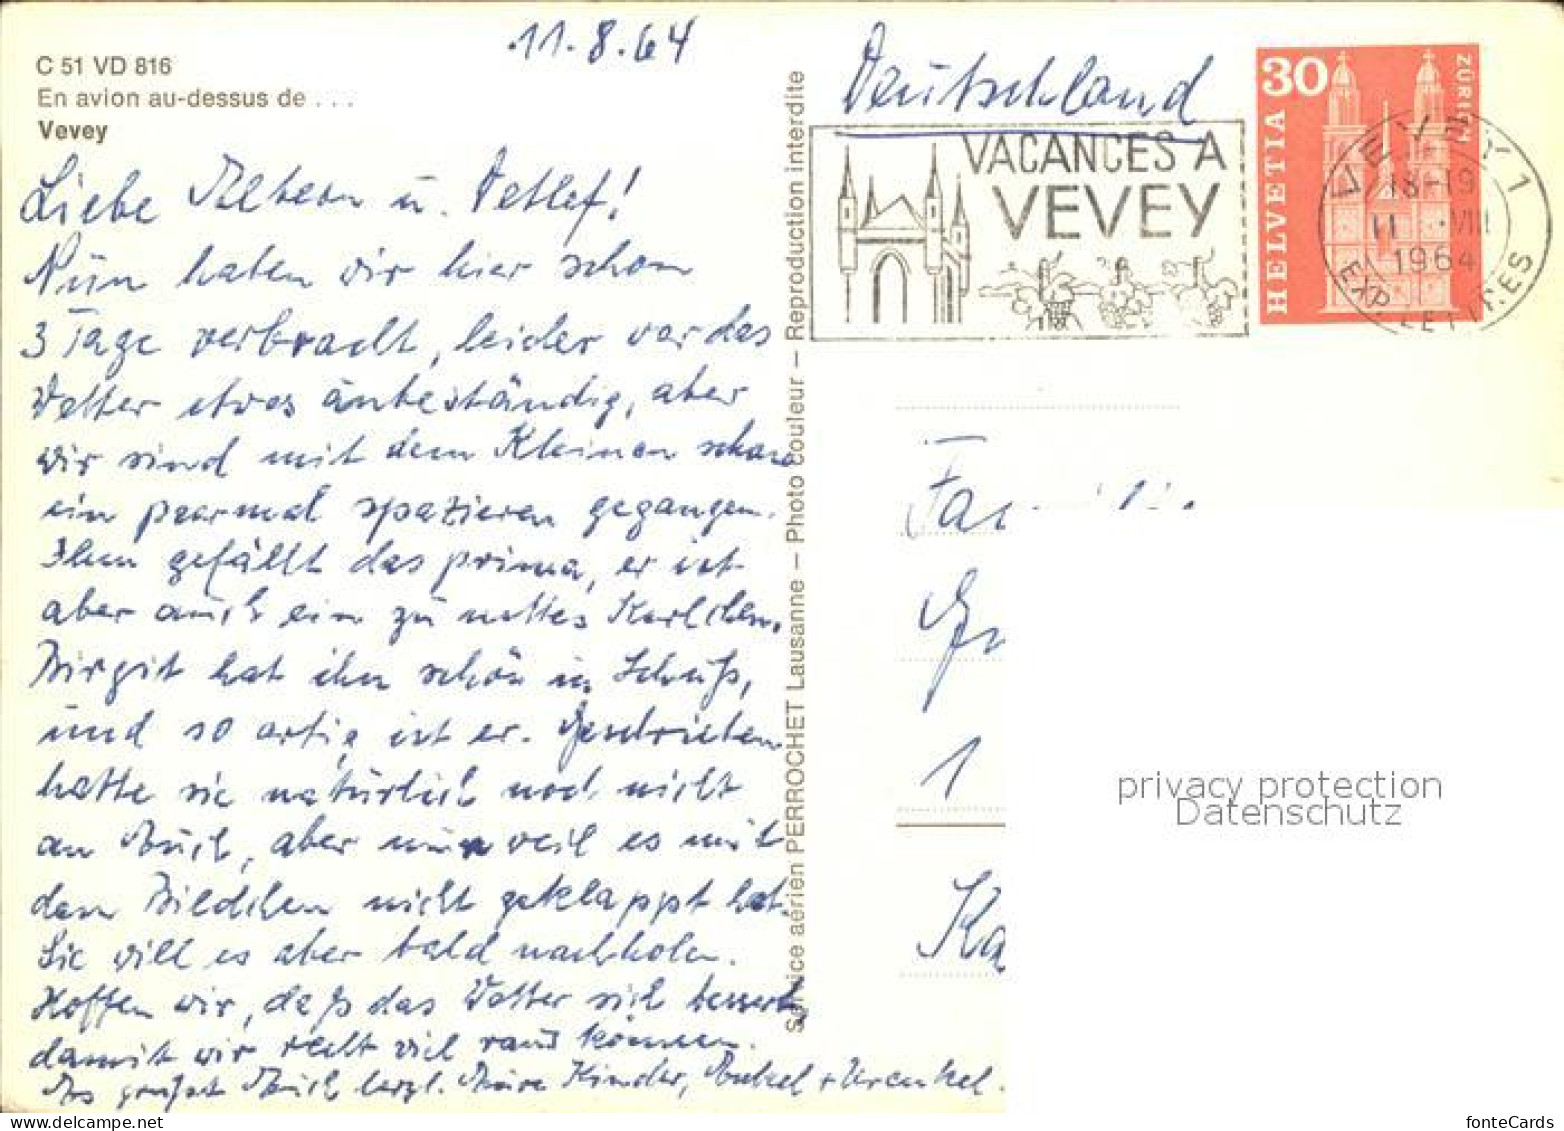 11.8.64
C 51 VD 816
En avion au-dessus de . . .
Vevey
Liebe Eltern u. Detlef!
Nun haben wir hier schon
3 Tage verbracht, leider war das
Wetter etwas unbeständig, aber
wir sind mit dem Kleinen schon
ein paarmal spazieren gegangen.
Ihm gefällt das prima, er ist
aber auch ein zu nettes Kerlchen.
Birgit hat ihn schön in Schuß,
und so artig ist er. Geschrieben
hatte sie natürlich noch nicht
an Euch, aber nun weil es mit
den Bildchen nicht geklappt hat.
Sie will es aber bald nachholen.
Hoffen wir, daß das Wetter sich bessert,
damit wir recht viel raus können.
Es grüßt Euch herzl. Eure Kinder, Enkel + Urenkel.
Service aérien PERROCHET Lausanne – Photo couleur – Reproduction interdite
Deutschland
VACANCES A
VEVEY
30
HELVETIA
ZÜRICH
VEVEY 1
18-19
11 VIII
1964
EXP. LETTRES
Familie
1
Ka
privacy protection
Datenschutz
fonteCards